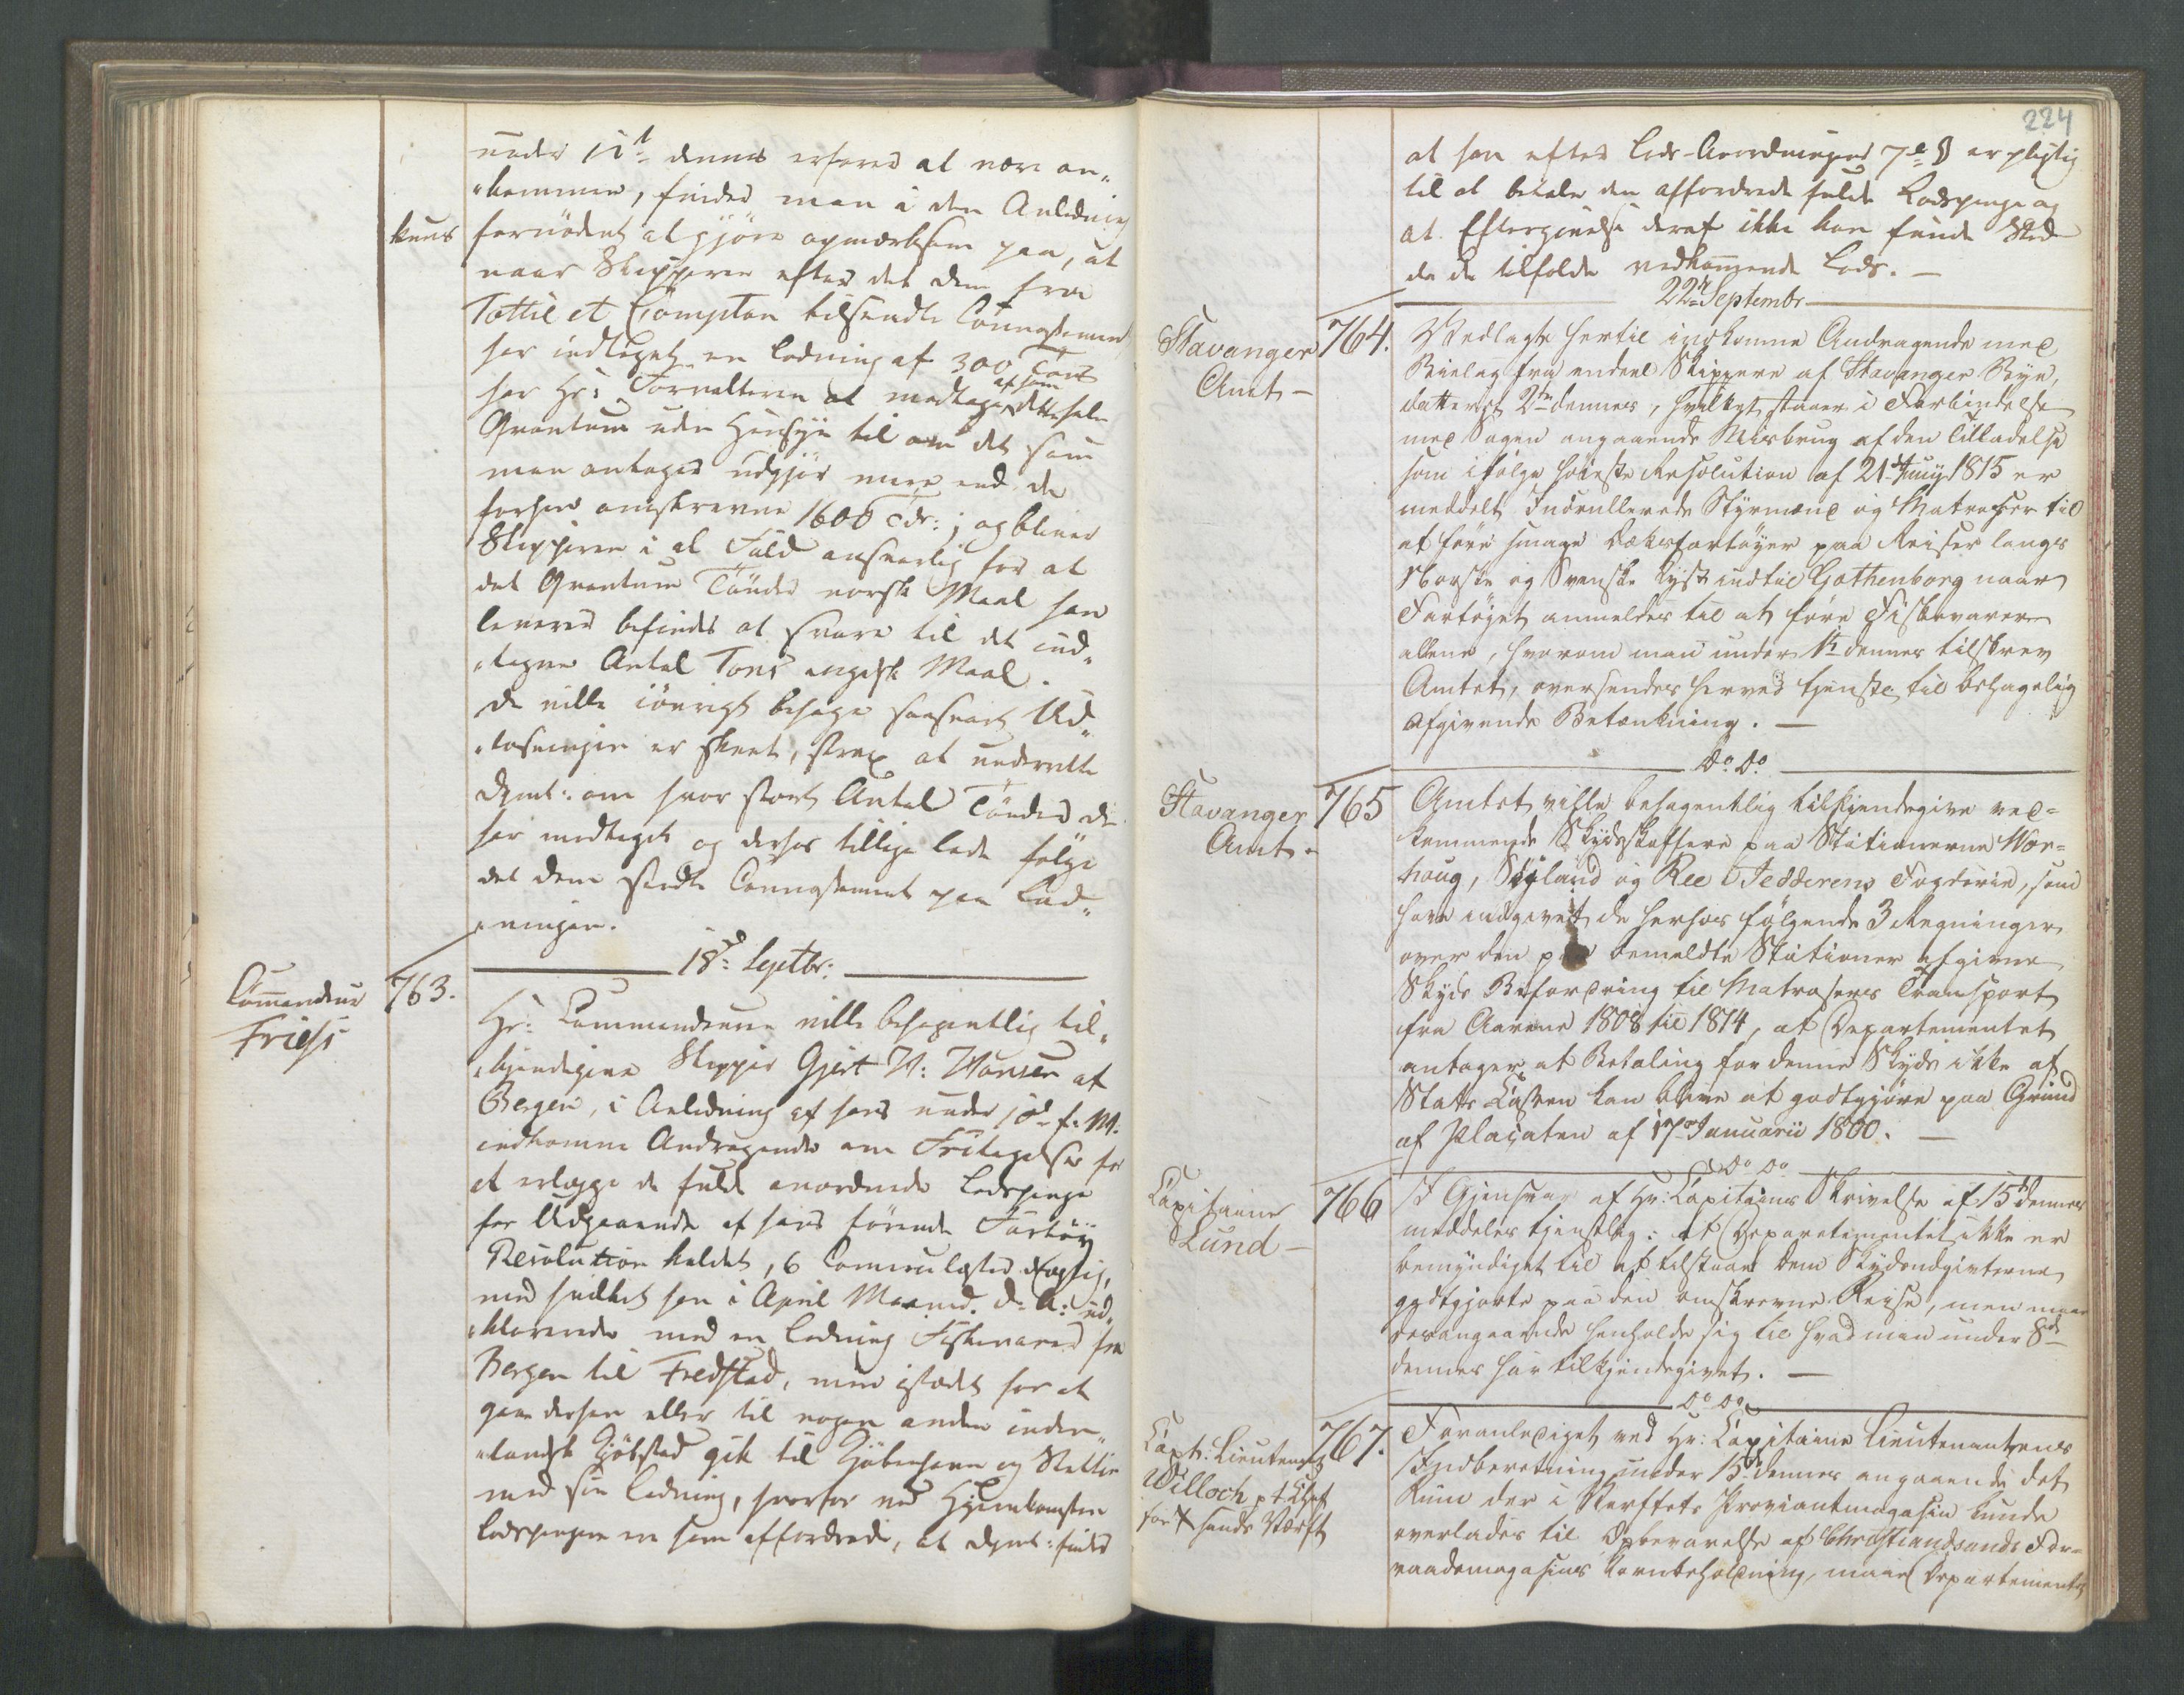 under 11t dennes erfares at være an„
„kommen, finder man i den Anledning
kuns
fornödent at gjöre opmærksom paa, at
naar Skipperen efter det dem fra
Tottie et Compton tilsendte Connossement
har indtaget en Ladning af 300 Tons
har Hr: Forvalteren at modtage af ham dette hele
Qvantum uden Hensyn til om det som
man antager udgjör mere end de
forhen omskrevne 1600 Tdr: ; og bliver
Skipperen i al Fald ansvarlig for at
det Qvantum Tönder norsk Maal han
leverer befindes at svare til det ind„
„tagne Antal Tons engelsk Maal.
De ville iövrigt behage saasnart Ud„
„losningen er skeet, strax at underrette
Dpmt: om hvor stort Antal Tönder De
har modtaget og derhos tillige lade fölge
det dem sendte Connossement paa Lad„
„ningen.
18de Septbr:
Commandeur
Friess
763.
Hr: Commandeuren ville behagentlig til„
„kjendegive Skipper Gjert H: Hansen af
Bergen, i Anledning af hans under 10d f. M.
indkomne Andragende om Fritagelse for
at erlægge de fulde anordnede Lodspenge
for Udgaaende af hans förende Fartöy
Resolution kaldet, 6 Commerclæster drægtig,
med hvilket han i April Maaned d: A: ud„
„klarerede med en Ladning Fiskevarer fra
Bergen til Fredstad, men istædet for at
gaae derhen eller til nogen anden inden„
„landsk Kjöbstad gik til Kjöbenhavn og Stettin
med sin Ladning, hvorfor ved Hjemkomsten
Lodspengene ere ham affordrede, at Dpmt: finder
224
at han efter Lods-Anordningens 7de § er pligtig
til at betale den affordrede fulde Lodspenge og
at Eftergivelse deraf ikke kan finde Sted
da de tilfalde vedkommende Lods. —
22de Septembr
Stavanger
Amt —
764.
Vedlagte hertil indkomne Andragende med
Bielag fra endeel Skippere af Stavanger Bye,
datteret 2den dennes, hvilket staaer i Forbindelse
med Sagen angaaende Misbrug af den Tilladelse
som ifölge höieste Resolution af 21de Juny 1815 er
meddelt Indrullerede Styrmænd og Matroser til
at före smaae Dæksfartöyer paa Reiser langs
Norske og Svenske Kyst indtil Gothenborg naar
Fartöyet anmeldes til at före Fiskevarer
allene, hvorom man under 1te dennes tilskrev
Amtet, oversendes herved tjenstl. til behagelig
afgivende Betænkning. —
Do Do
Stavanger
Amt. —
765
Amtet ville behagentlig tilkjendegive ved=
kommende Skydsskaffere paa Stationerne Vor=
houg, Sigland og Ree i Jedderens Fogderie, som
have indgivet de herhos fölgende 3 Regninger
over den paa bemeldte Stationer afgivne
Skyds Befordring til Matrosers Transport
fra Aarene 1808 til 1814, at Departementet
antager at Betaling for denne Skyds ikke af
Stats Kassen kan blive at godtgjöre paa Grund
af Placaten af 17de Januarii 1800. —
Do Do
Capitaine
Lund —
766
I Gjensvar af Hr: Capitains Skrivelse af 15de dennes
meddeles tjenstlig: at Departementet ikke er
bemyndiget til at tilstaae Dem Skydsudgivterne
godtgjorte paa den omskrevne Reise, men maae
desangaaende henholde sig til hvad man under 8de
dennes har tilkjendegivet. —
Do Do
Capt: Lieutenant
Willoch p t Chef
for X sands Værft
767.
Foranlediget ved Hr: Capitaine Lieutenantens
Indberetning under 15de dennes angaaende det
Rum der i Værftets Proviantmagasin kunde
overlades til Opbevarelse af Christiandsands For=
raadsmagasins Kornbeholdning, maae Departementet